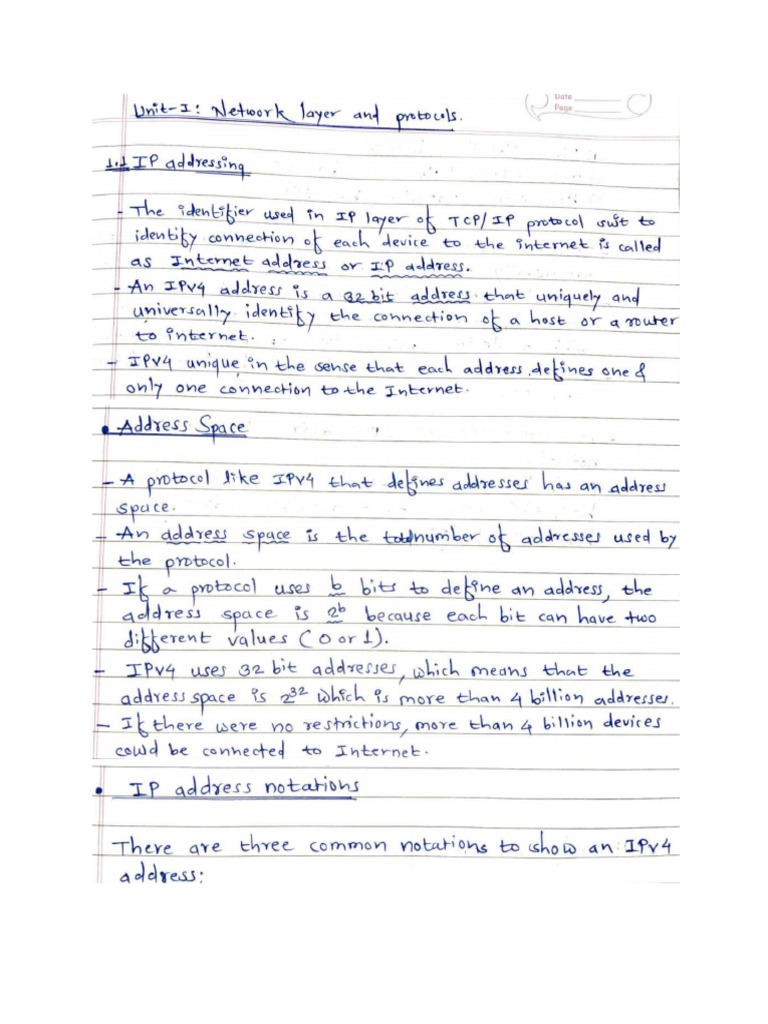 Date
Page
Unit-I: Network layer and protocols.
1.1 IP addressing
- The identifier used in IP layer of TCP/IP protocol suit to
identify connection of each device to the internet is called
as Internet address or IP address.
- An IPV4 address is a 32 bit address that uniquely and
universally identify the connection of a host or a router
to internet.
- IPV4 unique in the sense that each address defines one &
only one connection to the Internet.
• Address Space
- A protocol like IPV4 that defines addresses has an address
space.
- An address space is the total number of addresses used by
the protocol.
- If a protocol uses b bits to define an address, the
address space is 2^b because each bit can have two
different values (0 or 1).
- IPV4 uses 32 bit addresses, which means that the
address space is 2^32 which is more than 4 billion addresses.
- If there were no restrictions, more than 4 billion devices
could be connected to Internet.
• IP address notations
There are three common notations to show an IPV4
address: